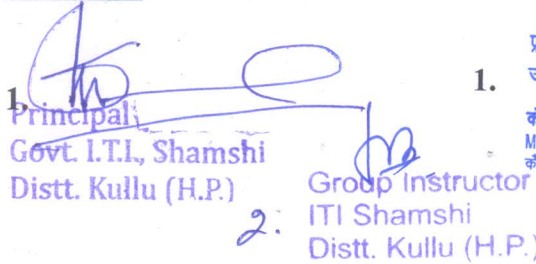 1.
Principal
Govt. I.T.I., Shamshi
Distt. Kullu (H.P.)
2.
Group Instructor
ITI Shamshi
Distt. Kullu (H.P.)
1.